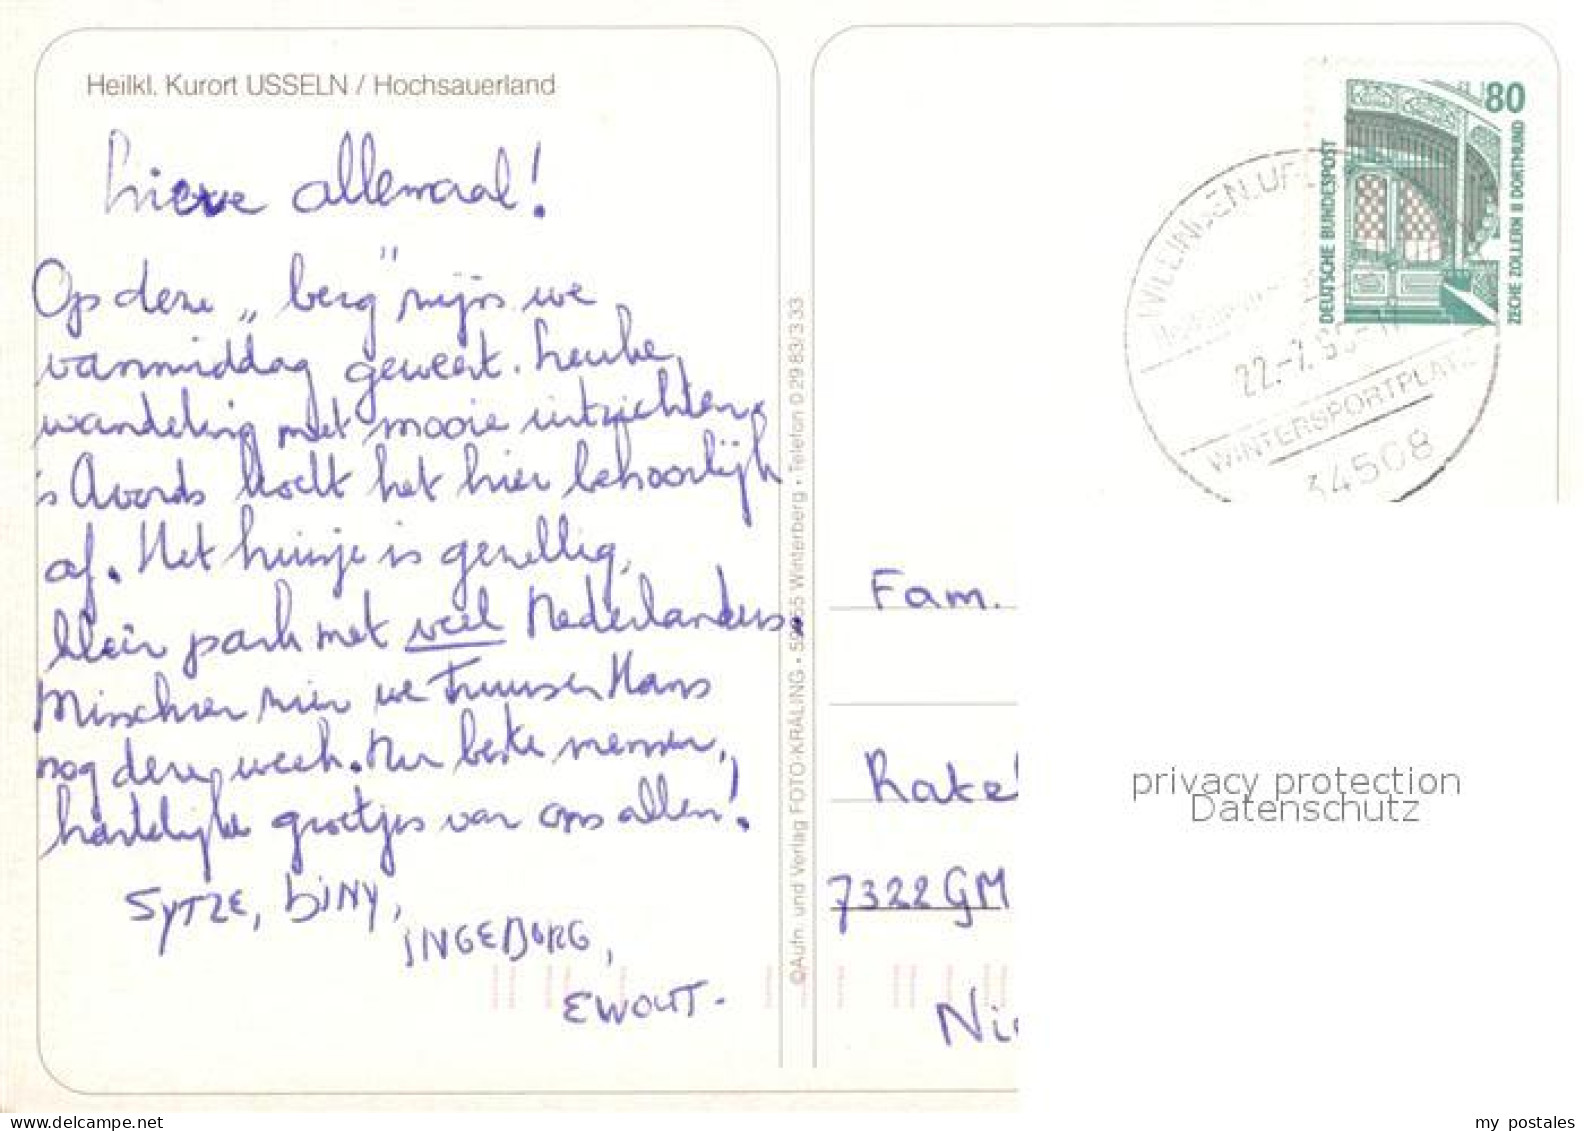 Heilkl. Kurort USSELN / Hochsauerland
Lieve allemaal!
Op deze „berg” zijn we
vanmiddag geweest. Leuke
wandeling met mooie uitzichten.
's Avonds koelt het hier behoorlijk
af. Het huisje is gezellig,
klein park met veel Nederlanders.
Misschien zien we Truus en Hans
nog deze week. Nu beste mensen,
hartelijke groetjes van ons allen!
SYTZE, DINY,
INGEBORG,
EWOUT.
©Aufn. und Verlag FOTO-KRÄLING • 59955 Winterberg • Telefon 0 29 83/3 33
80
DEUTSCHE BUNDESPOST
ZECHE ZOLLERN II DORTMUND
WILLINGEN, UPL
22.-7.95-17
WINTERSPORTPLATZ
34508
Fam.
Rake
7322 GM
Ni
privacy protection
Datenschutz
my postales